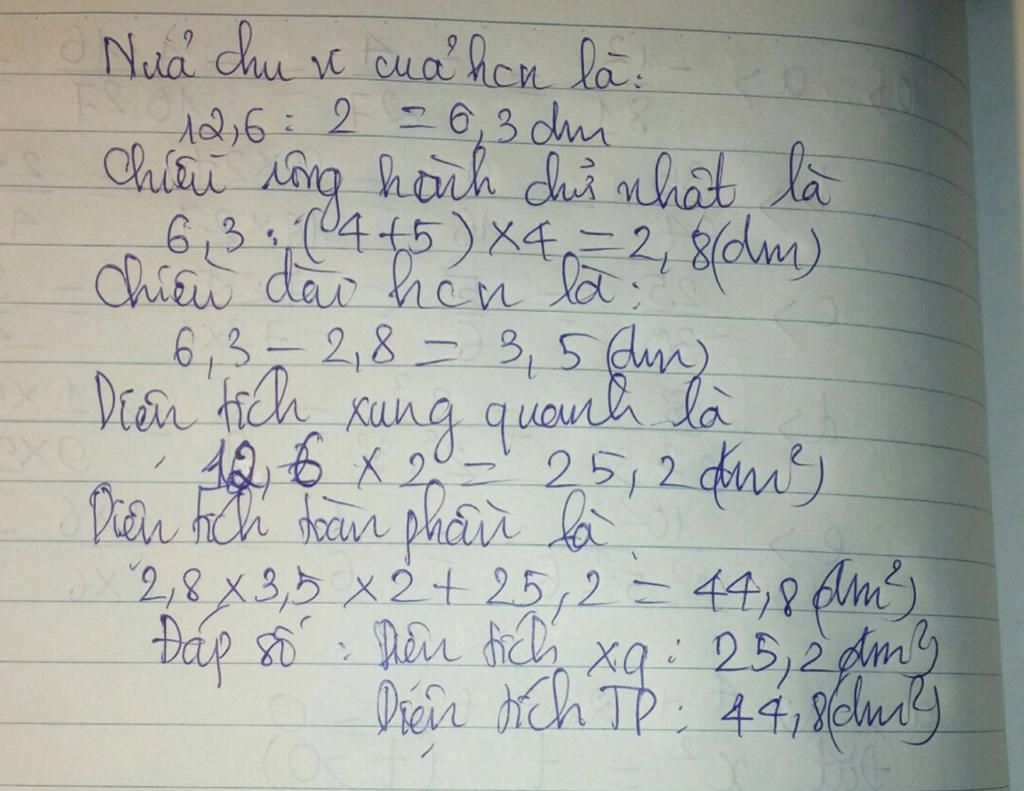 Nửa chu vi của hcn là:
12,6 : 2 = 6,3 dm
Chiều rộng hành chữ nhât là
6,3 : (4+5) × 4 = 2,8(dm)
Chiều dào hcn là:
6,3 - 2,8 = 3,5 (dm)
Diên tích xung quanh là
12,6 × 2 = 25,2 (dm²)
Diên tích toàn phần là
2,8 × 3,5 × 2 + 25,2 = 44,8 (dm²)
Đáp số : Diên tích xq : 25,2 dm²)
Diện tích TP : 44,8(dm²)